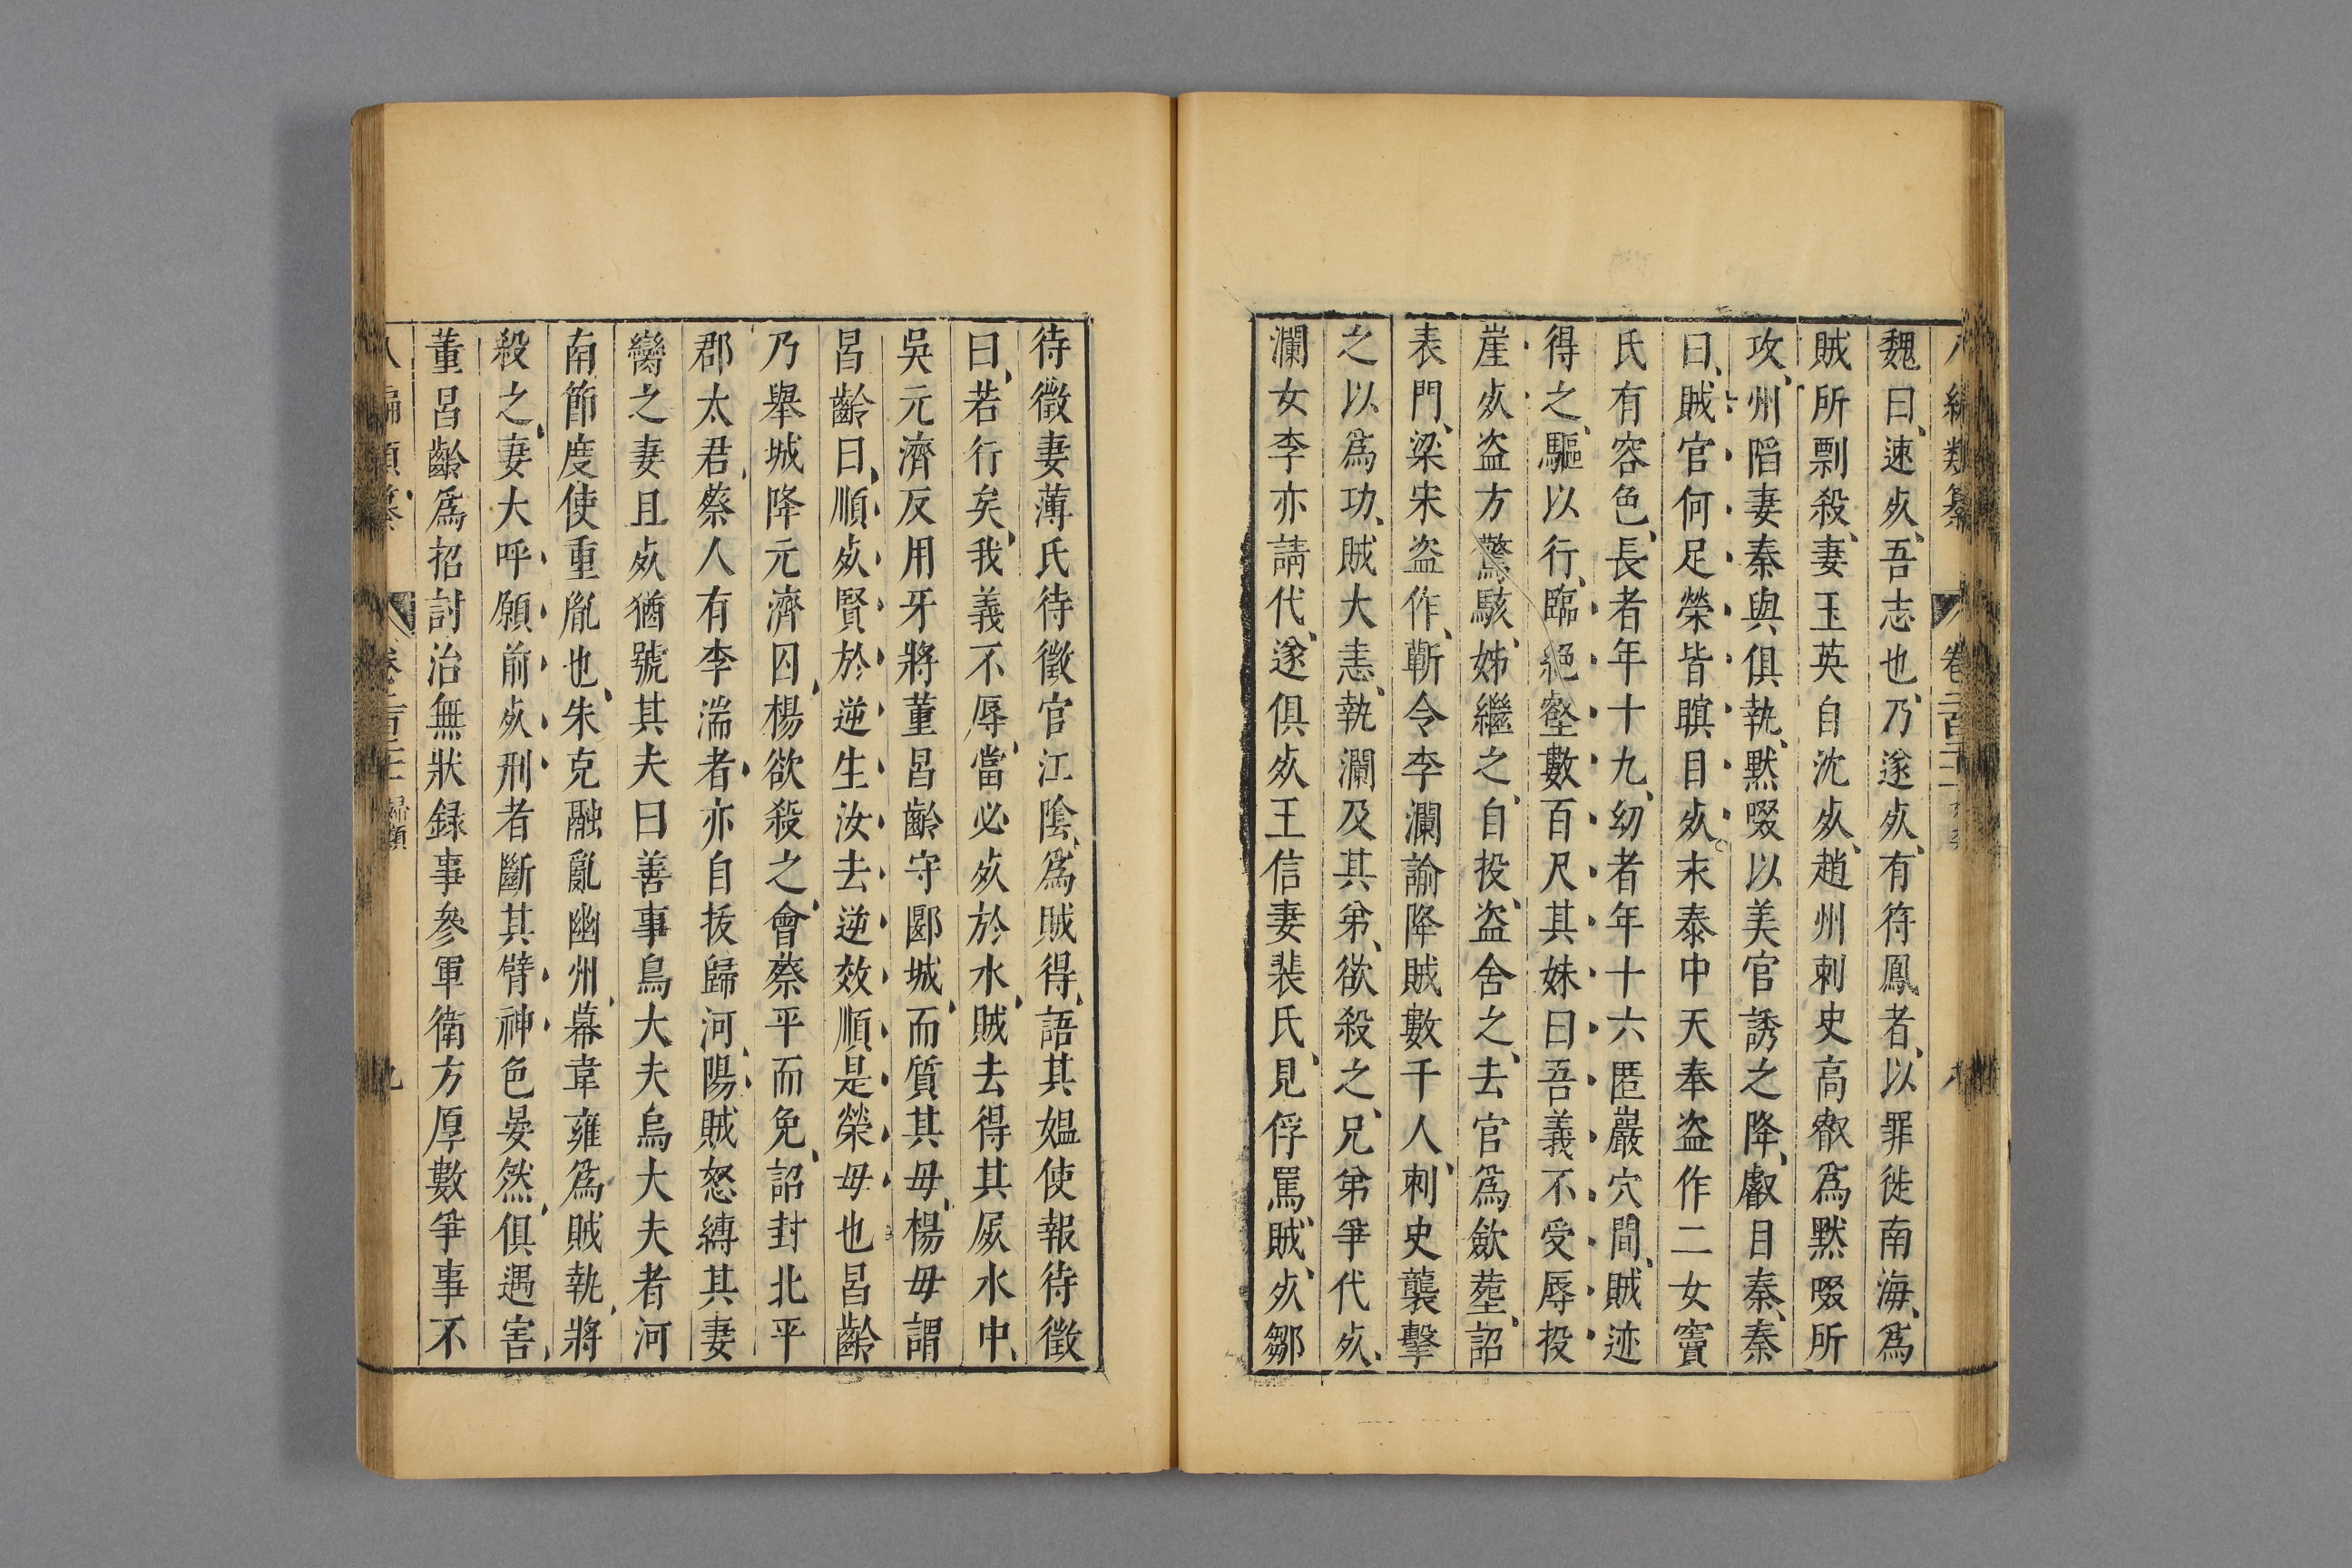 魏曰速死吾志也乃遂死有符鳳者以罪徙南海為
賊所剽殺妻玉英自沈死趙州刺史高叡為默啜所
攻州陷妻秦與俱執默啜以美官誘之降叡目秦秦
曰賊官何足榮皆瞑目死末泰中天奉盜作二女竇
氏有容色長者年十九幼者年十六匿巖穴間賊迹
得之驅以行臨絕壑數百尺其妹曰吾義不受辱投
崖死盜方驚駭姊繼之自投盜舍之去官為斂塟詔
表門梁宋盜作蘄令李瀾諭降賊數千人刺史襲擊
之以為功賊大恚執瀾及其弟欲殺之兄弟爭代死
瀾女李亦請代遂俱死王信妻裴氏見俘罵賊死鄒
待徵妻薄氏待徵官江陰為賊得語其媼使報待徵
曰若行矣我義不辱當必死於水賊去得其屍水中
吳元濟反用牙將董昌齡守郾城而質其母楊母謂
昌齡曰順死賢於逆生汝去逆效順是榮母也昌齡
乃舉城降元濟囚楊欲殺之會蔡平而免詔封北平
郡太君蔡人有李湍者亦自拔歸河陽賊怒縛其妻
臠之妻且死猶號其夫曰善事烏大夫烏大夫者河
南節度使重胤也朱克融亂幽州幕韋雍為賊執將
殺之妻大呼願前死刑者斷其臂神色晏然俱遇害
董昌齡為招討治無狀録事參軍衛方厚數爭事不